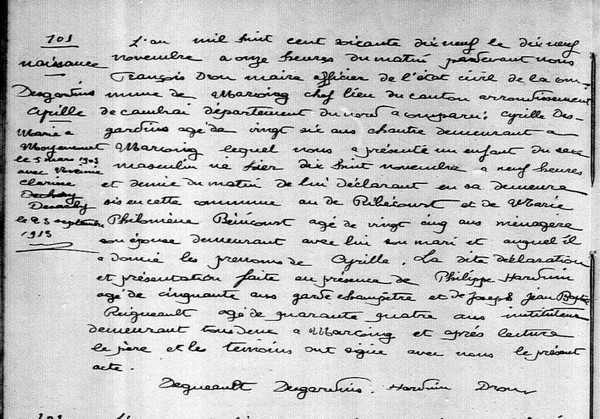 101
naissance
Desgardins
Cyrille
Marié à
Moyenneville
le 5 mars 1903
avec
clarisse
le 23 septembre
1913
L'an mil huit cent soixante dix neuf le dix neuf
novembre a onze heures du matin pardevant nous
François Drou maire officier de l'état civil de la com-
mune de Marcoing chef lieu du canton arrondissement
de cambrai département du nord a comparu: Cyrille Des-
gardins agé de vingt six ans chantre demeurant a
Marcoing lequel nous a présenté un enfant du sexe
masculin né hier dix huit novembre a neuf heures
et demie du matin de lui déclarant en sa demeure
sis en cette commune au de Ribécourt et de Marie
Philomène agé de vingt cinq ans ménagère
son épouse demeurant avec lui son mari et auquel il
a donné les prenoms de Cyrille. La dite déclaration
et présentation faite au présence de Philippe Harduin
agé de cinquante ans garde champêtre et de Joseph Jean Baptiste
agé de quarante quatre ans instituteur
demeurant tous deux a Marcoing et après lecture
le père et les temoins ont signé avec nous le présent
acte.
Desgardins. Harduin Drou